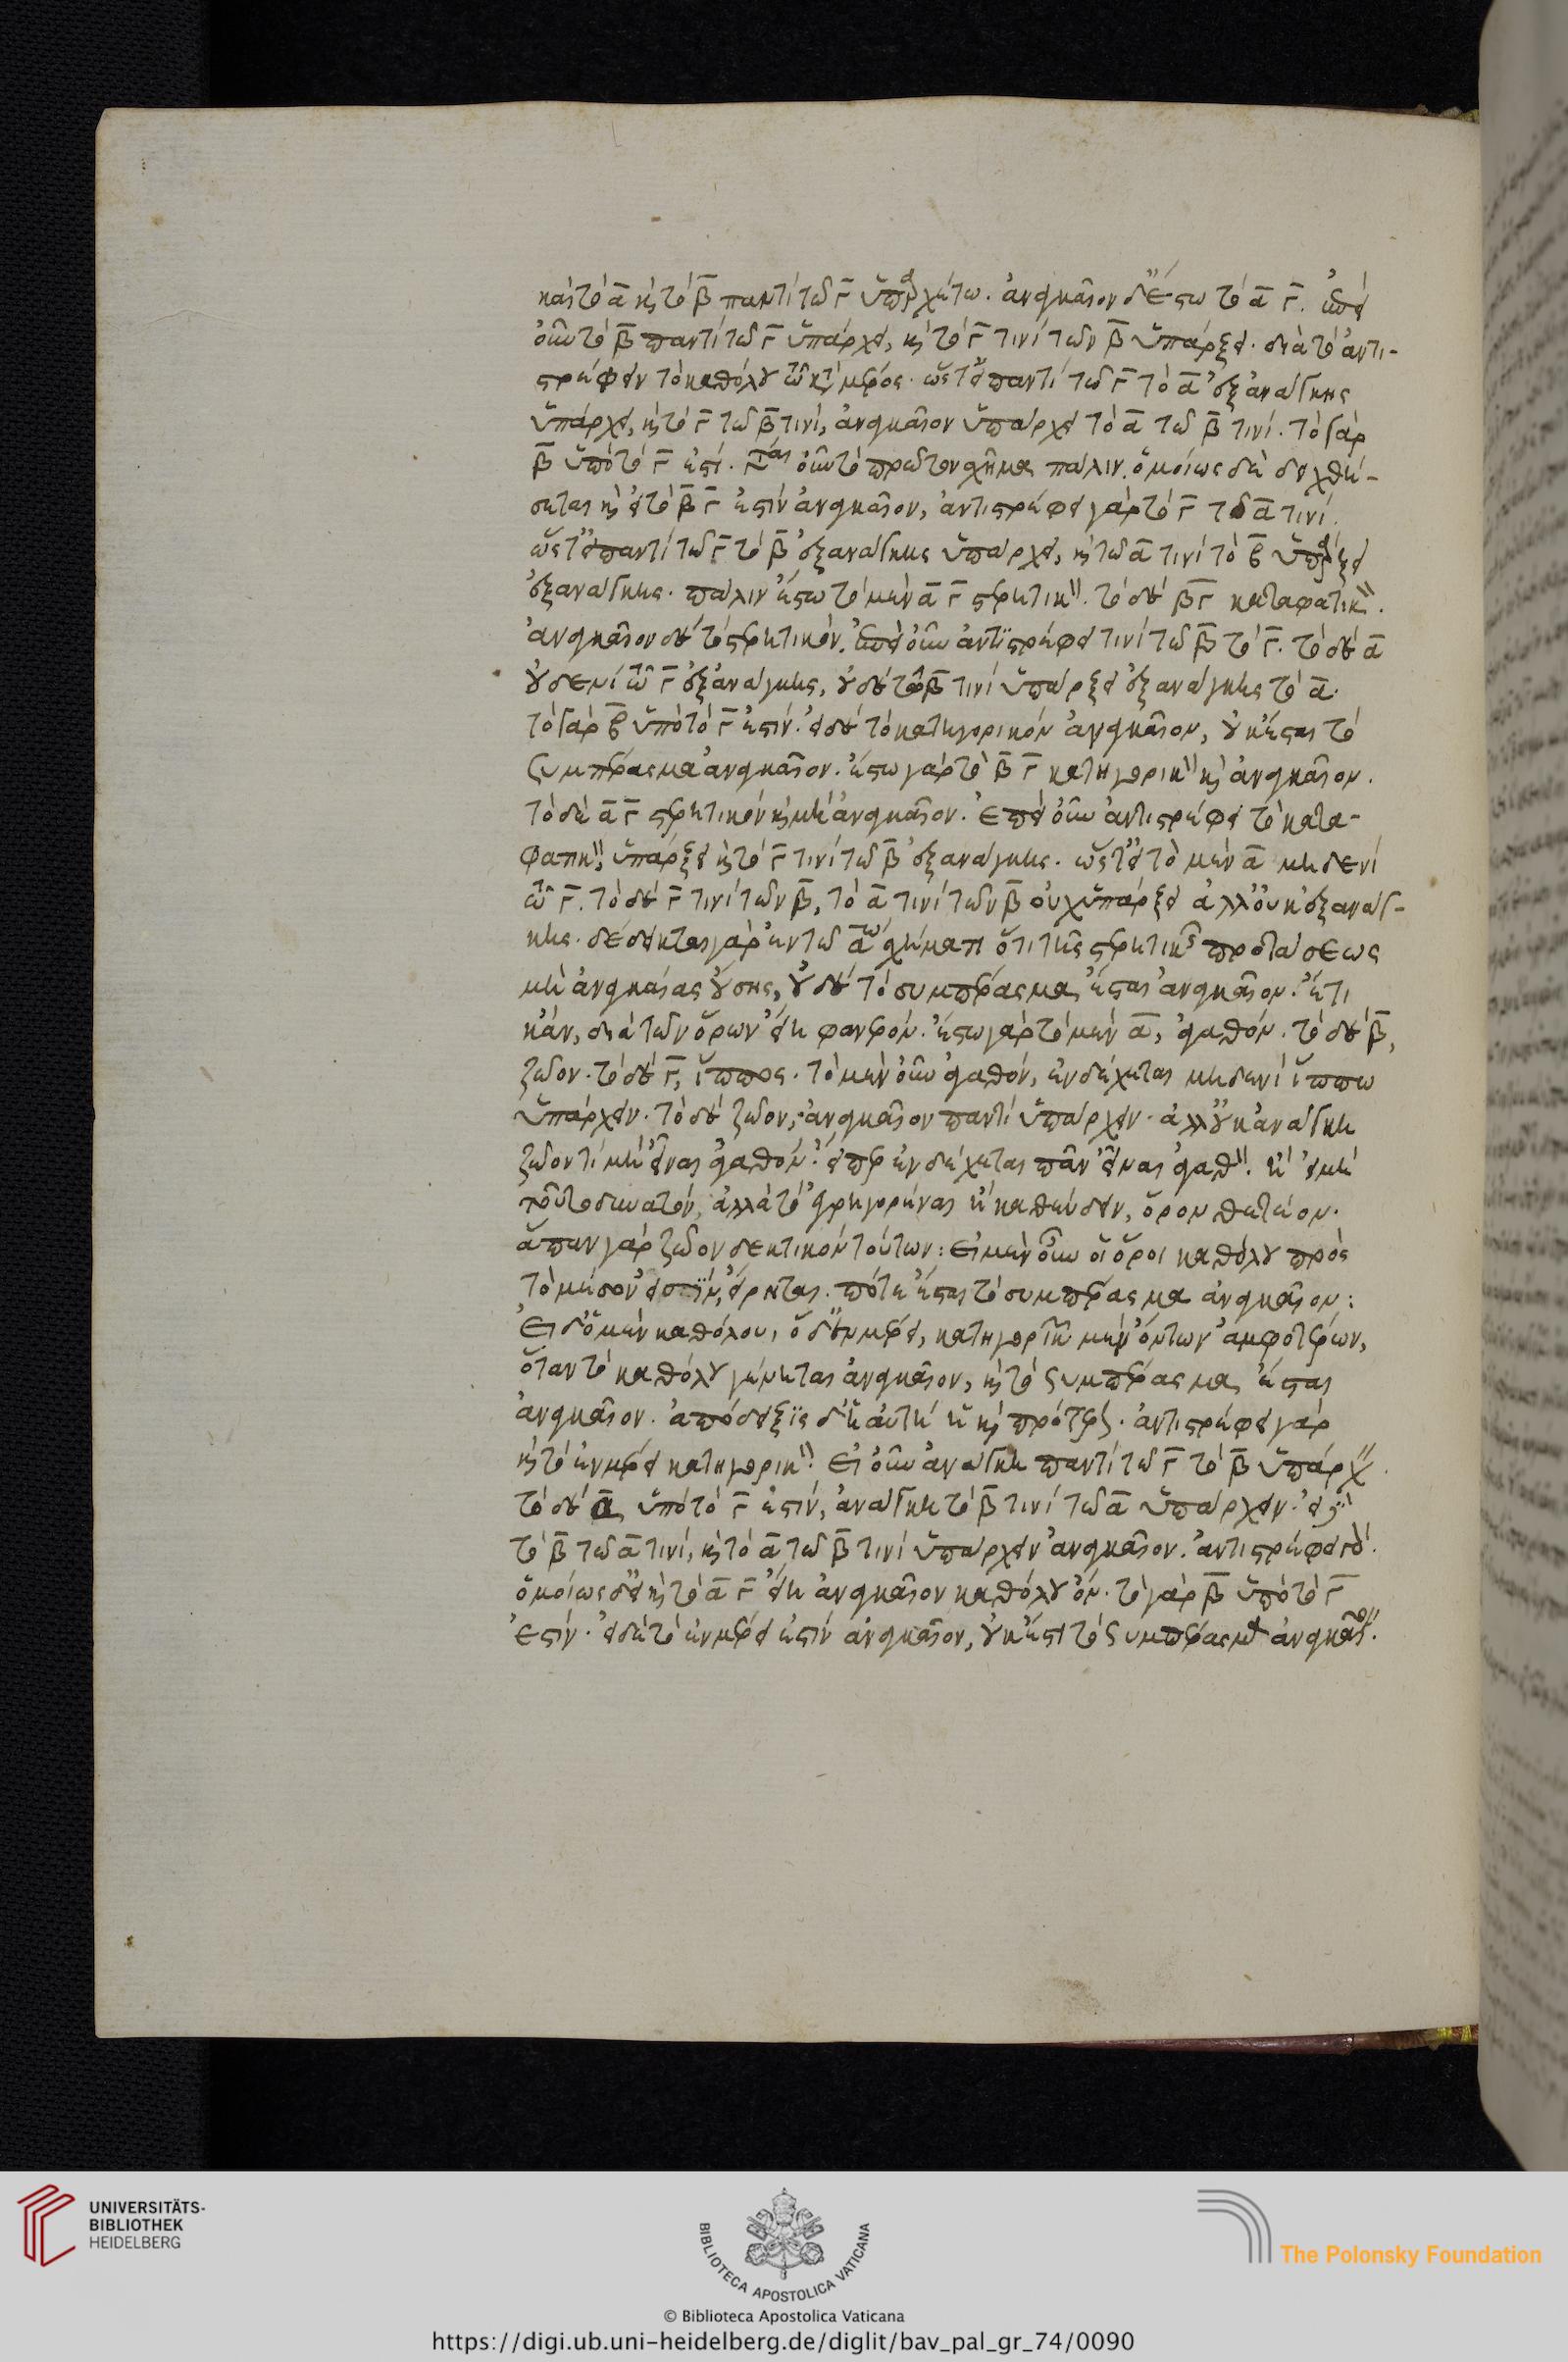 καὶ τὸ α̅ κ̀ τὸ β̅ παντὶ τῶ Γ̅ ὑπαρχέτω. ἀναγκαῖον δ' ἔστω τὸ α̅ Γ̅. ἐπεὶ
οὖν τὸ β̅ παντὶ τῶ Γ̅ ὑπάρχει, κ̀ τὸ Γ̅ τινὶ τῶν β̅ ὑπάρξει. διὰ τὸ ἀντι-
στρέφειν τὸ καθόλου τῶ κτ̀ μέρος. ὥστ' εἰ παντὶ τῶ Γ̅ τὸ α̅ ἐξ ἀνάγκης
ὑπάρχει, κ̀ τὸ Γ̅ τῶ β̅ τινί, ἀναγκαῖον ὑπάρχει τὸ α̅ τῶ β̅ τινί. τὸ γὰρ
β̅ ὑπὸ τὸ Γ̅ ἐστί. γίνεται οὖν τὸ πρῶτον σχῆμα πάλιν. ὁμοίως δὲ δειχθή-
σεται κ̀ εἰ τὸ β̅ Γ̅ ἐστὶν ἀναγκαῖον, ἀντιστρέφει γὰρ τὸ Γ̅ τῶ α̅ τινί.
ὥστ' εἰ παντὶ τῶ Γ̅ τὸ β̅ ἐξ ἀνάγκης ὑπάρχει, κ̀ τῶ α̅ τινὶ τὸ β̅ ὑπάρξει
ἐξ ἀνάγκης. πάλιν ἔστω τὸ μὲν α̅ Γ̅ στερητικὸν. τὸ δὲ β̅Γ̅ καταφατικὸν.
ἀναγκαῖον δὲ τὸ στερητικόν. ἐπεὶ οὖν ἀντιστρέφει τινὶ τῶ β̅ τὸ Γ̅. τὸ δὲ α̅
οὐδενὶ τῶ Γ̅ ἐξ ἀνάγκης, οὐδὲ τῶ β̅ τινὶ ὑπάρξει ἐξ ἀνάγκης τὸ α̅.
τὸ γὰρ β̅ ὑπὸ τὸ Γ̅ ἐστίν. εἰ δὲ τὸ κατηγορικὸν ἀναγκαῖον, οὐκ ἔσται τὸ
συμπέρασμα ἀναγκαῖον. ἔστω γὰρ τὸ β̅ Γ̅ κατηγορικὸν κ̀ ἀναγκαῖον.
τὸ δὲ α̅ Γ̅ στερητικὸν κ̀ μὴ ἀναγκαῖον. ἐπεὶ οὖν ἀντιστρέφει τὸ κατα-
φατικὸν, ὑπάρξει κ̀ τὸ Γ̅ τινὶ τῶ β̅ ἐξ ἀνάγκης. ὥστ' εἰ τὸ μὲν α̅ μηδενὶ
τῶ Γ̅. τὸ δὲ Γ̅ τινὶ τῶν β̅, τὸ α̅ τινὶ τῶν β̅ οὐχ ὑπάρξει ἀλλ' οὐκ ἐξ ἀνάγ-
κης. δέδεικται γὰρ ἐν τῶ α̅ω σχήματι ὅτι τῆς στερητικῆς προτάσεως
μὴ ἀναγκαίας οὔσης, οὐδὲ τὸ συμπέρασμα ἔσται ἀναγκαῖον. ἔτι
κἂν, διὰ τῶν ὅρων εἴη φανερόν. ἔστω γὰρ τὸ μὲν α̅, ἀγαθόν. τὸ δὲ β̅,
ζῶον. τὸ δὲ Γ̅, ἵππος. τὸ μὲν οὖν ἀγαθόν, ἐνδέχεται μηδενὶ ἵππω
ὑπάρχειν. τὸ δὲ ζῶον, ἀναγκαῖον παντὶ ὑπάρχειν. ἀλλ' οὐκ ἀνάγκη
ζῶόν τι μὴ εἶναι ἀγαθόν. εἴπερ ἐνδέχεται πᾶν εἶναι ἀγαθὸν. ἢ εἰ μὴ
τοῦτο δυνατόν, ἀλλὰ τὸ ἐγρηγορέναι ἢ καθεύδειν, ὅρον θετέον.
ἅπαν γὰρ ζῶον δεκτικὸν τούτων: Εἰ μὲν οὖν οἱ ὅροι καθόλου πρὸς
τὸ μέσον εἰσίν, εἴρηται. πότε ἔσται τὸ συμπέρασμα ἀναγκαῖον:
Εἰ δ' ὁ μὲν καθόλου, ὁ δ' ἐν μέρει, κατηγορικῶν μὲν ὄντων ἀμφοτέρων,
ὅταν τὸ καθόλου γένηται ἀναγκαῖον, κ̀ τὸ συμπέρασμα ἔσται
ἀναγκαῖον. ἀπόδειξις δ' ἡ αὐτὴ ἣ κ̀ πρότερον. ἀντιστρέφει γὰρ
κ̀ τὸ ἐν μέρει κατηγορικὸν. Εἰ οὖν ἀνάγκη παντὶ τῶ Γ̅ τὸ β̅ ὑπάρχειν.
τὸ δὲ α̅ ὑπὸ τὸ Γ̅ ἐστίν, ἀνάγκη τὸ β̅ τινὶ τῶ α̅ ὑπάρχειν. εἰ δὲ
τὸ β̅ τῶ α̅ τινί, κ̀ τὸ α̅ τῶ β̅ τινὶ ὑπάρχειν ἀναγκαῖον. ἀντιστρέφει γὰρ.
ὁμοίως δ' εἰ κ̀ τὸ α̅ Γ̅ εἴη ἀναγκαῖον καθόλου ὄν. τὸ γὰρ β̅ ὑπὸ τὸ Γ̅
ἐστίν. εἰ δὲ τὸ ἐν μέρει ἐστὶν ἀναγκαῖον, οὐκ ἔσται τὸ συμπέρασμα ἀναγκαῖον.
UNIVERSITÄTS-
BIBLIOTHEK
HEIDELBERG
BIBLIOTECA APOSTOLICA VATICANA
The Polonsky Foundation
© Biblioteca Apostolica Vaticana
https://digi.ub.uni-heidelberg.de/diglit/bav_pal_gr_74/0090